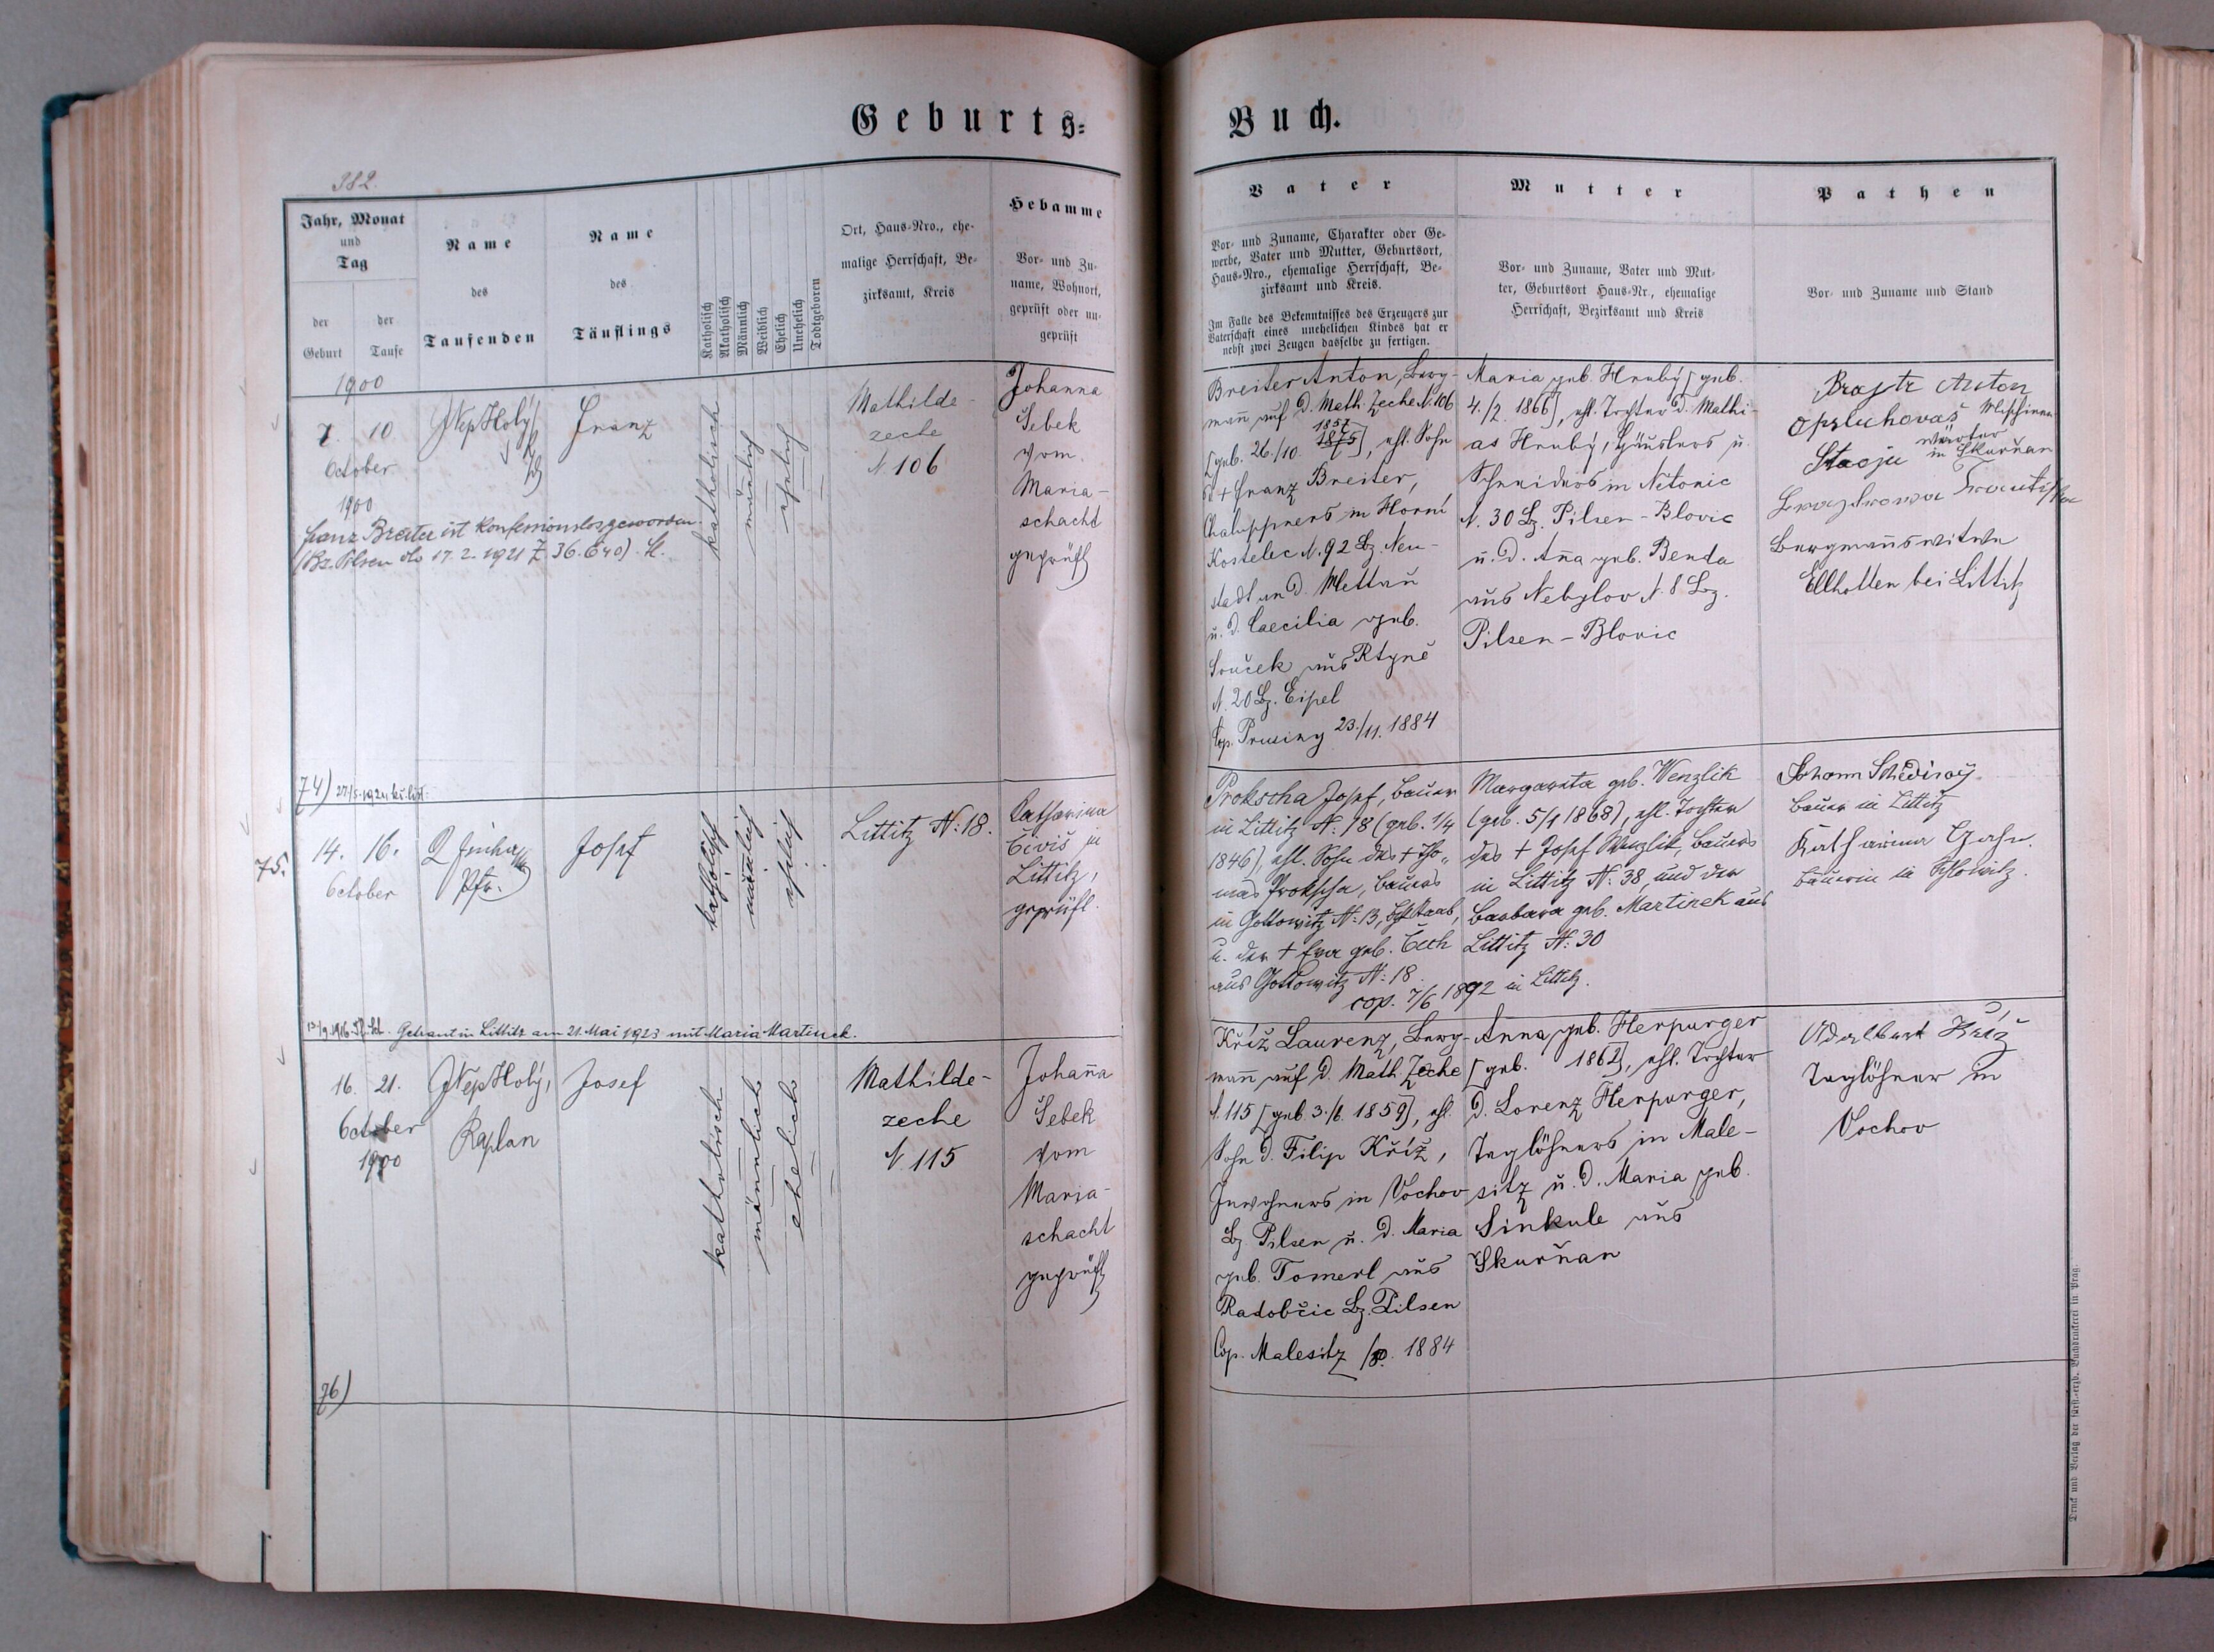 Geburts-
Buch.
382.
Jahr, Monat
und
Tag
der
Geburt
der
Taufe
Name
des
Taufenden
Name
des
Täuflings
Katholisch
Akatholisch
Männlich
Weiblich
Ehelich
Unehelich
Todtgeboren
Ort, Haus-Nro., ehe-
malige Herrschaft, Be-
zirksamt, Kreis
Hebamme
Vor- und Zu-
name, Wohnort,
geprüft oder un-
geprüft
Vater
Vor- und Zuname, Charakter oder Ge-
werbe, Vater und Mutter, Geburtsort,
Haus-Nro., ehemalige Herrschaft, Be-
zirksamt und Kreis.
Im Falle des Bekenntnisses des Erzeugers zur
Vaterschaft eines unehelichen Kindes hat er
nebst zwei Zeugen dasselbe zu fertigen.
Mutter
Vor- und Zuname, Vater und Mut-
ter, Geburtsort Haus-Nr., ehemalige
Herrschaft, Bezirksamt und Kreis
Pathen
Vor- und Zuname und Stand
1900
7. 10
October
1900
JNep Holý
Franz
katholisch
männlich
ehelich
Mathilde-
zeche
N. 106
Johanna
Šebek
vom
Maria-
schacht
geprüft
Franz Breiter ist konfessionslos geworden
(Bz. Pilsen dto 17. 2. 1921 Z 36.640).
Breiter Anton, Berg-
mann auf d. Math. Zeche N. 106
1857
[geb. 26./10. 1875], ehl. Sohn
d. + Franz Breiter,
Chaluppners in Horní
Kostelec N. 92 Bz. Neu-
stadt an d. Mettau
u. d. Caecilia geb.
Souček aus Rtyně
N. 20 Bz. Eipel
Cop. Prusiny 23./11. 1884
Maria geb. Hrubý [geb.
4./2. 1866], ehl. Tochter d. Mathi-
as Hrubý, Häuslers u.
Schneiders in Netonic
N. 30 Bz. Pilsen-Blovic
u. d. Anna geb. Benda
aus Nebylov N. 8 Bz.
Pilsen-Blovic
Anton
wärter
in Skurňan
Bergmannswitwe
Ellhotten bei Littitz
74)
75.
14. 16.
October
Pfr.
Josef
katholisch
männlich
ehelich
Littitz N: 18.
Katharina
Čeviš in
Littitz,
geprüft.
Prokscha Josef, Bauer
in Littitz N: 18 (geb. 1/4
1846) ehl. Sohn des + Tho-
mas Prokscha, Bauers
in Gottowitz N: 13, Bz. Staab,
u. der + Eva geb. Čech
aus Gottowitz N: 18.
cop. 7/6 1892 in Littitz.
Margareta geb. Wenzlik
(geb. 5/1 1868), ehl. Tochter
des + Josef Wenzlik, Bauers
in Littitz N: 38, und der
Barbara geb. Martinek aus
Littitz N: 30
Johann Schediwy
Bauer in Littitz
Katharina
Bäuerin in
Getraut in Littitz am 21. Mai 1923 mit Maria Martinek.
16. 21.
October
1900
JNep Holý,
Kaplan
Josef
katholisch
männlich
ehelich
Mathilde-
zeche
N. 115
Johanna
Šebek
vom
Maria-
schacht
geprüft
Kříž Laurenz, Berg-
mann auf d. Math. Zeche
N. 115 [geb. 3./8. 1859], ehl.
Sohn d. Filip Kříž,
Inwohners in Vochov
Bz. Pilsen u. d. Maria
geb. Tomerl aus
Radobčic Bz. Pilsen
Cop. Malesitz 1884
Anna, geb. Herpurger
[geb. 1862], ehl. Tochter
d. Lorenz Herpurger,
Taglöhners in Male-
sitz u. d. Maria geb.
Sinkule aus
Skurňan
Adalbert Kříž
Taglöhner in
Vochov
76)
Druck und Verlag der fürst.-erzb. Buchdruckerei in Prag.